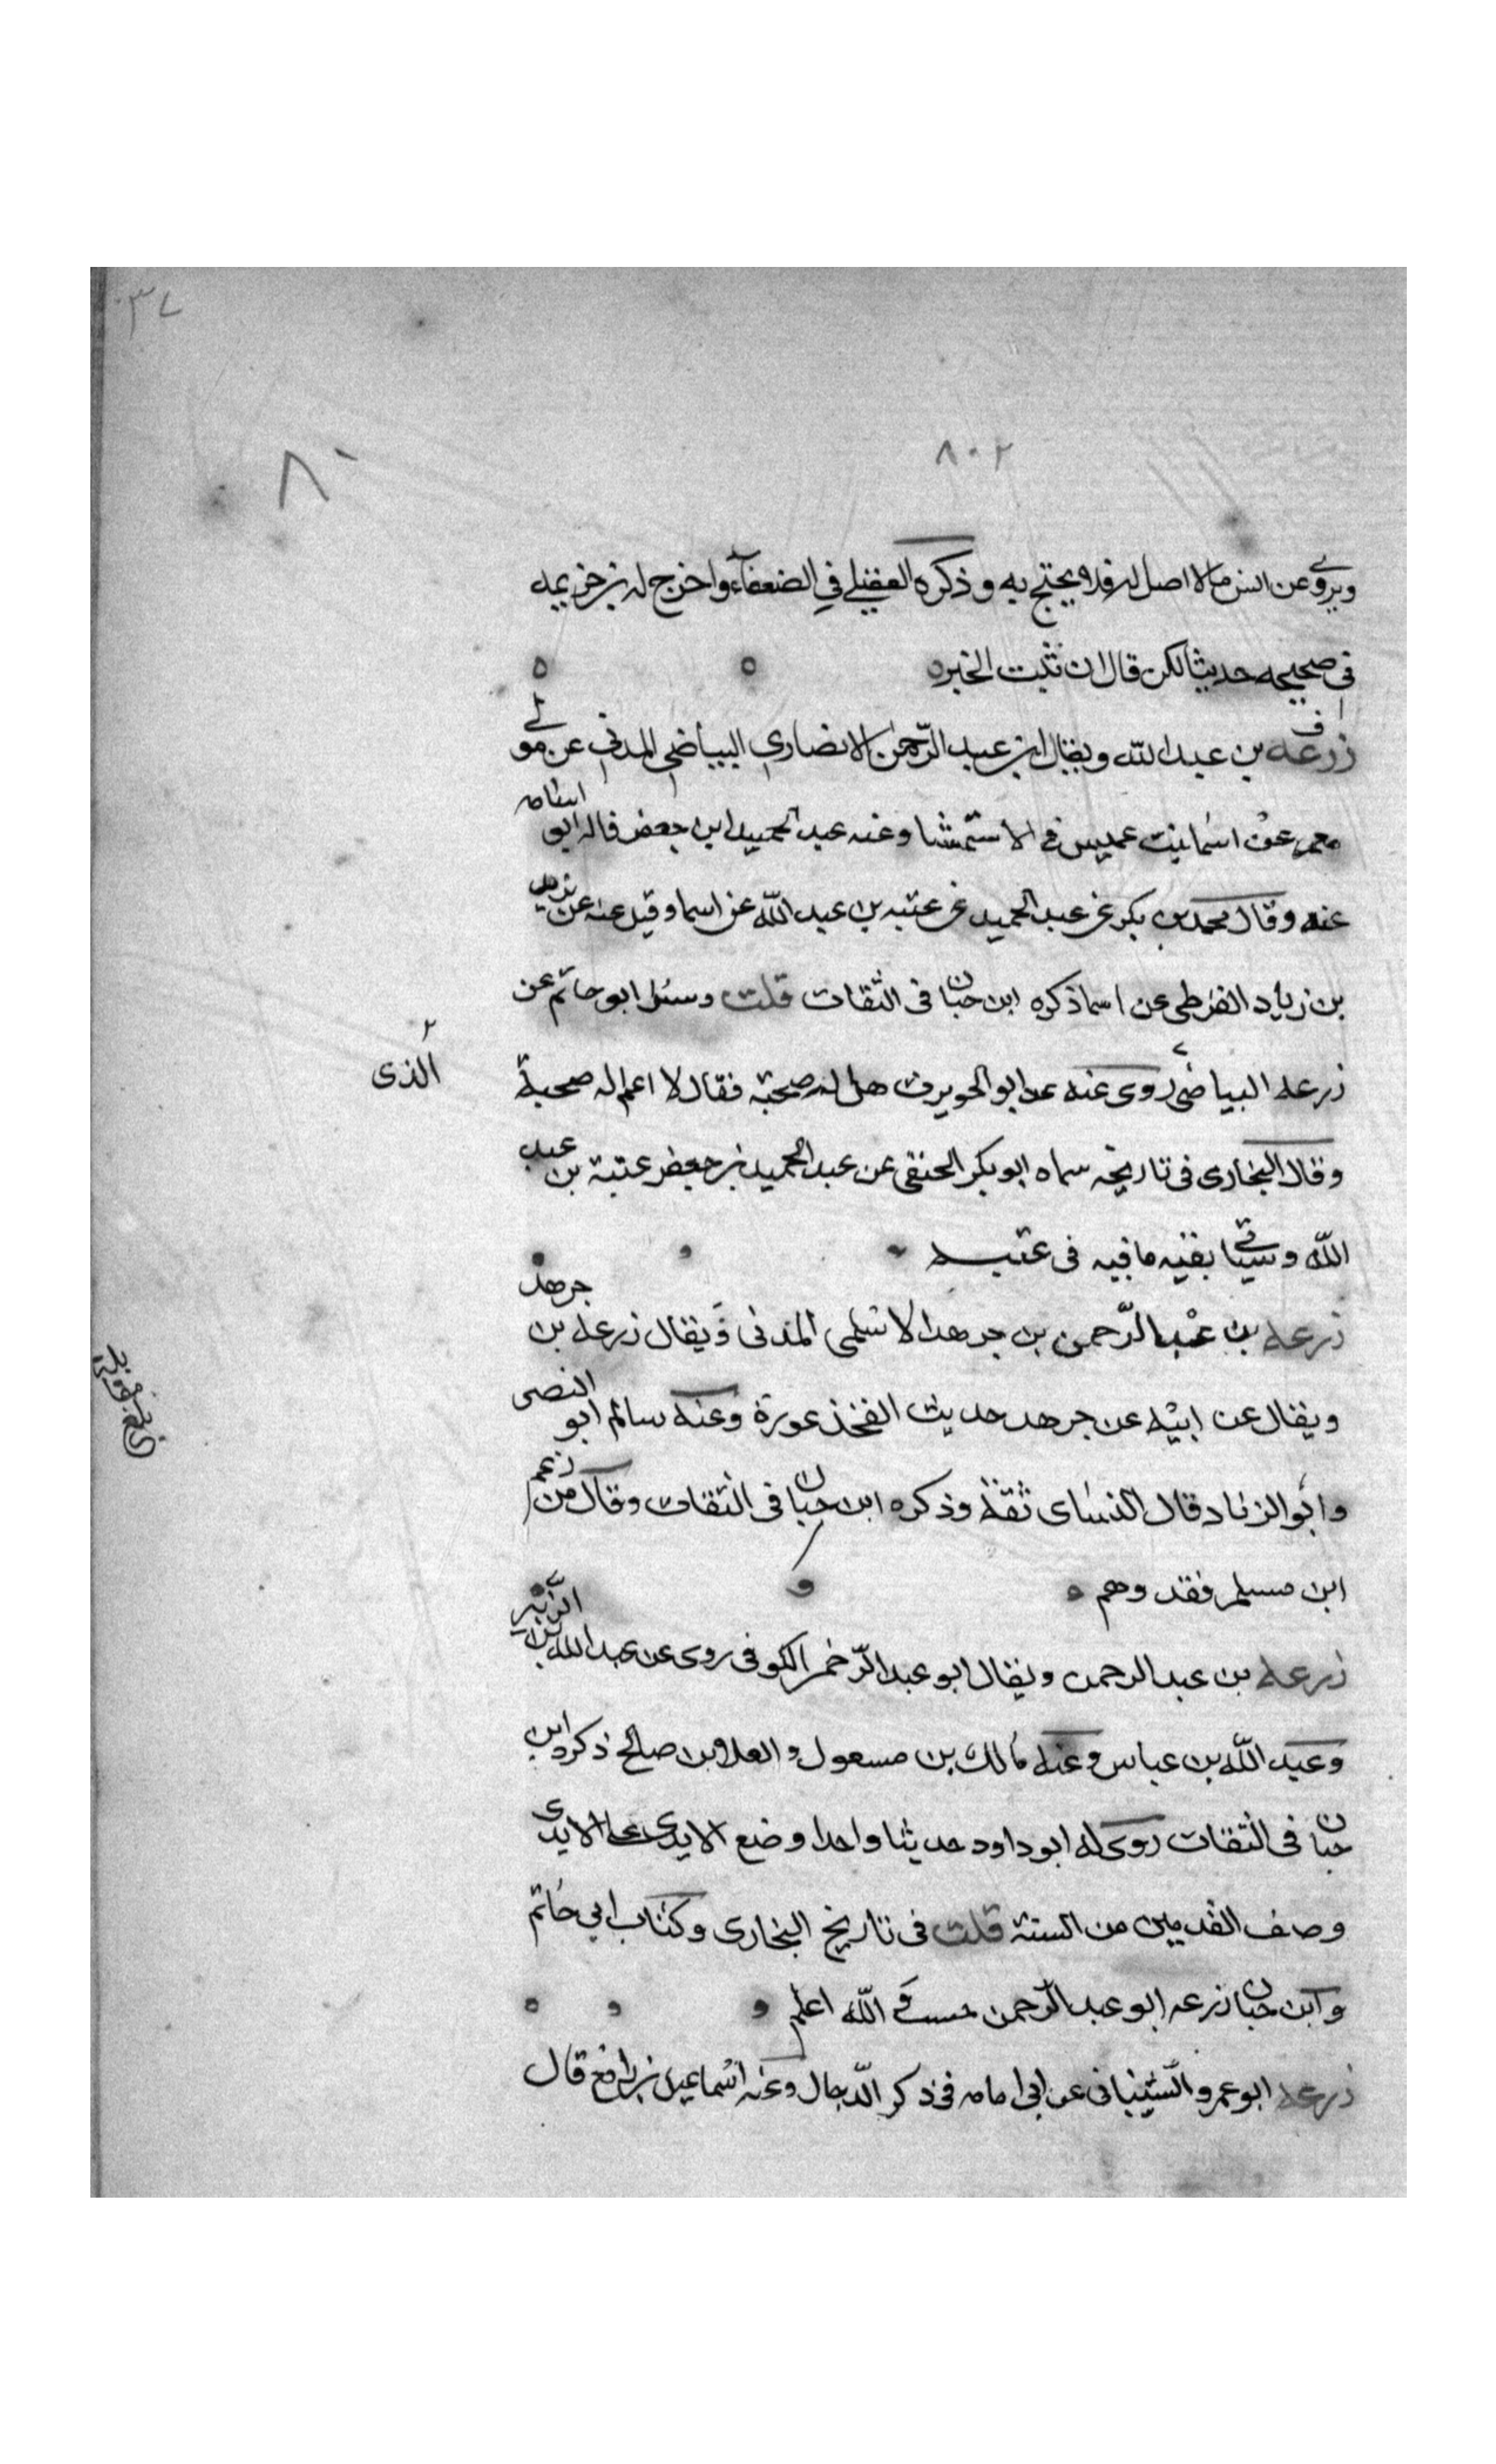 ٨٠٢
٨٠
ويروى عن انس ما لا اصل له فلا يحتج به وذكره العقيلي في الضعفاء واخرج له بن خزيمه
في صحيحه حديثا لكن قال ان ثبت الخبر
زرعه بن عبد الله ويقال ابن عبد الرحمن الانصاري البياضي المدني عن مولى
معمر عن اسما بنت عميس في الاستمشا وعنه عبد الحميد ابن جعفر قاله ابو اسامه
عنه وقال محمد بن بكر عن عبد الحميد عن عتبه بن عبد الله عن اسما وقيل عنه عن يزيد
بن زياد القرظى عن اسما ذكره ابن حبان فى الثقات قلت وسئل ابو حاتم عن
زرعه البياضى روى عنه ابو الحويرث هل له صحبة فقال لا اعلم له صحبة
الذى
وقال البخارى فى تاريخه سماه ابو بكر الحنفى عن عبد الحميد بن جعفر عتبة بن عبد
الله وسياتى بقيه ما فيه فى عتبه
زرعه بن عبد الرحمن بن جرهد الاسلمى المدنى ويقال زرعه بن جرهد
ويقال عن ابيه عن جرهد حديث الفخذ عورة وعنه سالم ابو النصر
وابو الزناد قال النساى ثقة وذكره ابن حبان فى الثقات وقال من زعم
ابن مسلم فقد وهم
زرعه بن عبد الرحمن ويقال ابو عبد الرحمن الكوفى روى عن عبد الله بن الزبير
وعبد الله بن عباس وعنه مالك بن مسعول والعلا بن صالح ذكره ابن
حبان فى الثقات روى له ابو داود حديثا واحدا وضع الايدى على الايدى
وصف القدمين من السنة قلت فى تاريخ البخارى وكتاب ابي حاتم
وابن حبان زرعه ابو عبد الرحمن حسب والله اعلم
زرعه ابو عمرو الشيبانى عن ابى امامه فى ذكر الدجال وعنه اسماعيل بن رافع قال